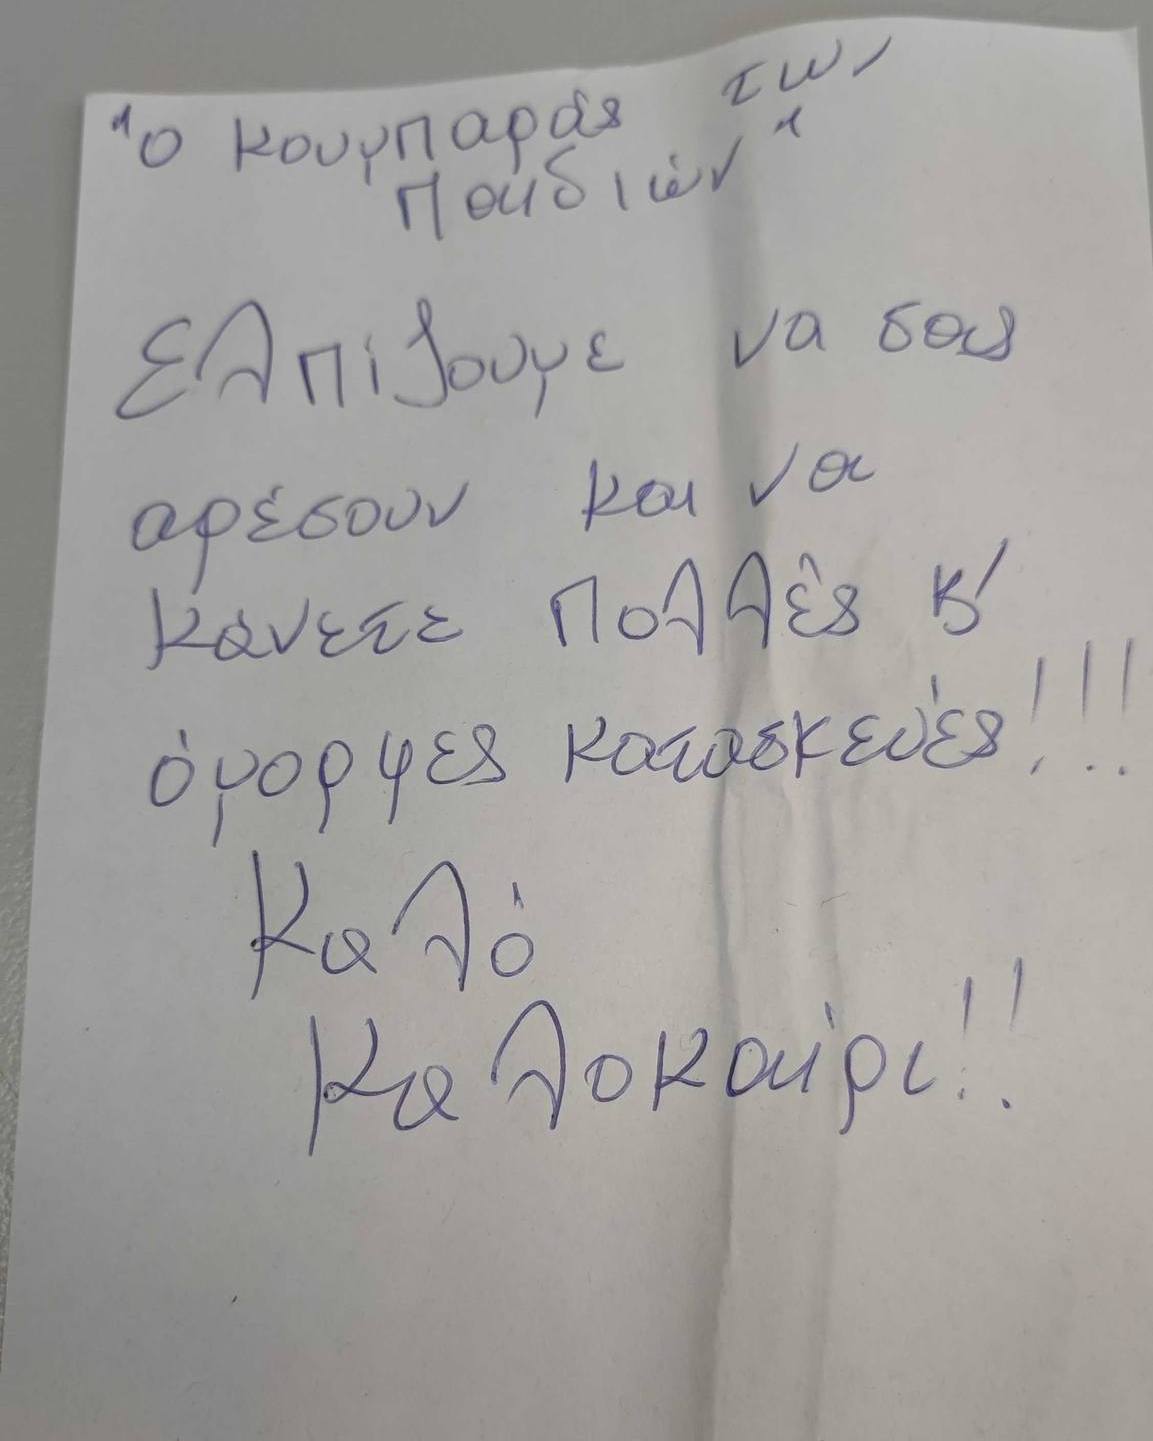 "Ο κουμπαράς των
παιδιών"
Ελπίζουμε να σας
αρέσουν και να
κάνετε πολλές κ'
όμορφες κατασκευές!!!
Καλό
Καλοκαίρι!!